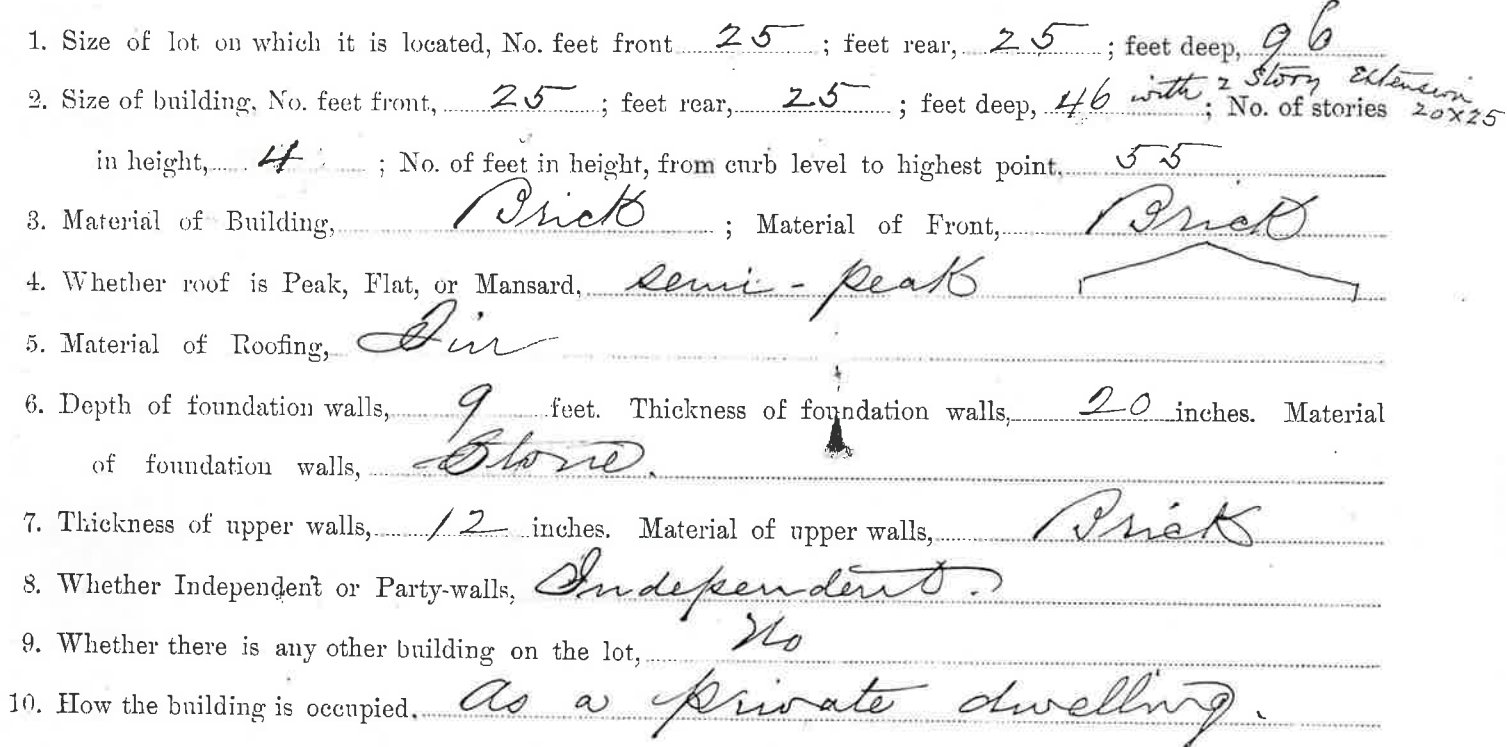 1. Size of lot on which it is located, No. feet front 25 ; feet rear, 25 ; feet deep, 96
2. Size of building, No. feet front, 25 ; feet rear, 25 ; feet deep, 46 with 2 story extension 20x25 ; No. of stories
in height, 4 ; No. of feet in height, from curb level to highest point, 55
3. Material of Building, Brick ; Material of Front, Brick
4. Whether roof is Peak, Flat, or Mansard, semi-peak
5. Material of Roofing, Tin
6. Depth of foundation walls, 9 feet. Thickness of foundation walls, 20 inches. Material
of foundation walls, Stone.
7. Thickness of upper walls, 12 inches. Material of upper walls, Brick
8. Whether Independent or Party-walls, Independent.
9. Whether there is any other building on the lot, No
10. How the building is occupied. As a private dwelling.